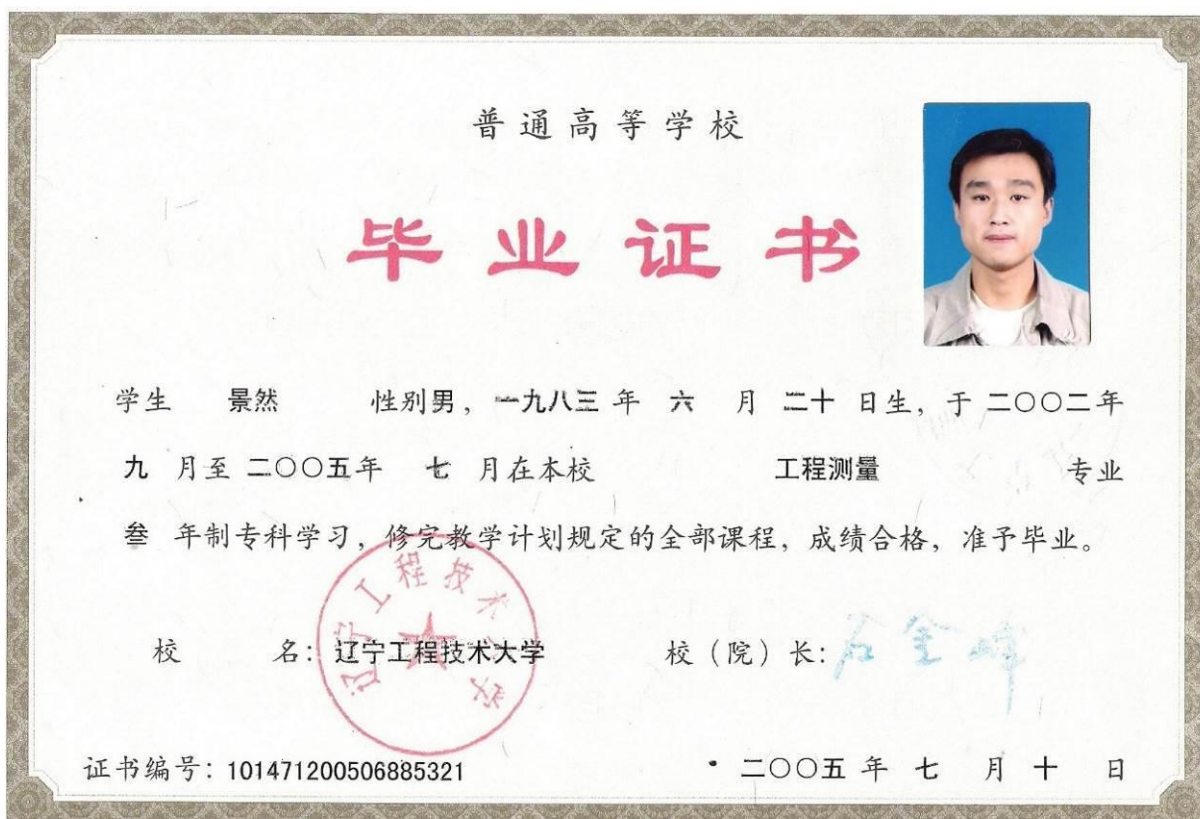 普通高等学校
毕业证书
学生 景然 性别男，一九八三年 六 月 二十 日生，于 二〇〇二年
九 月至 二〇〇五年 七 月在本校 工程测量 专业
叁 年制专科学习，修完教学计划规定的全部课程，成绩合格，准予毕业。
辽宁工程技术大学
校 名：辽宁工程技术大学 校（院）长：石金峰
证书编号：101471200506885321 二〇〇五 年 七 月 十 日